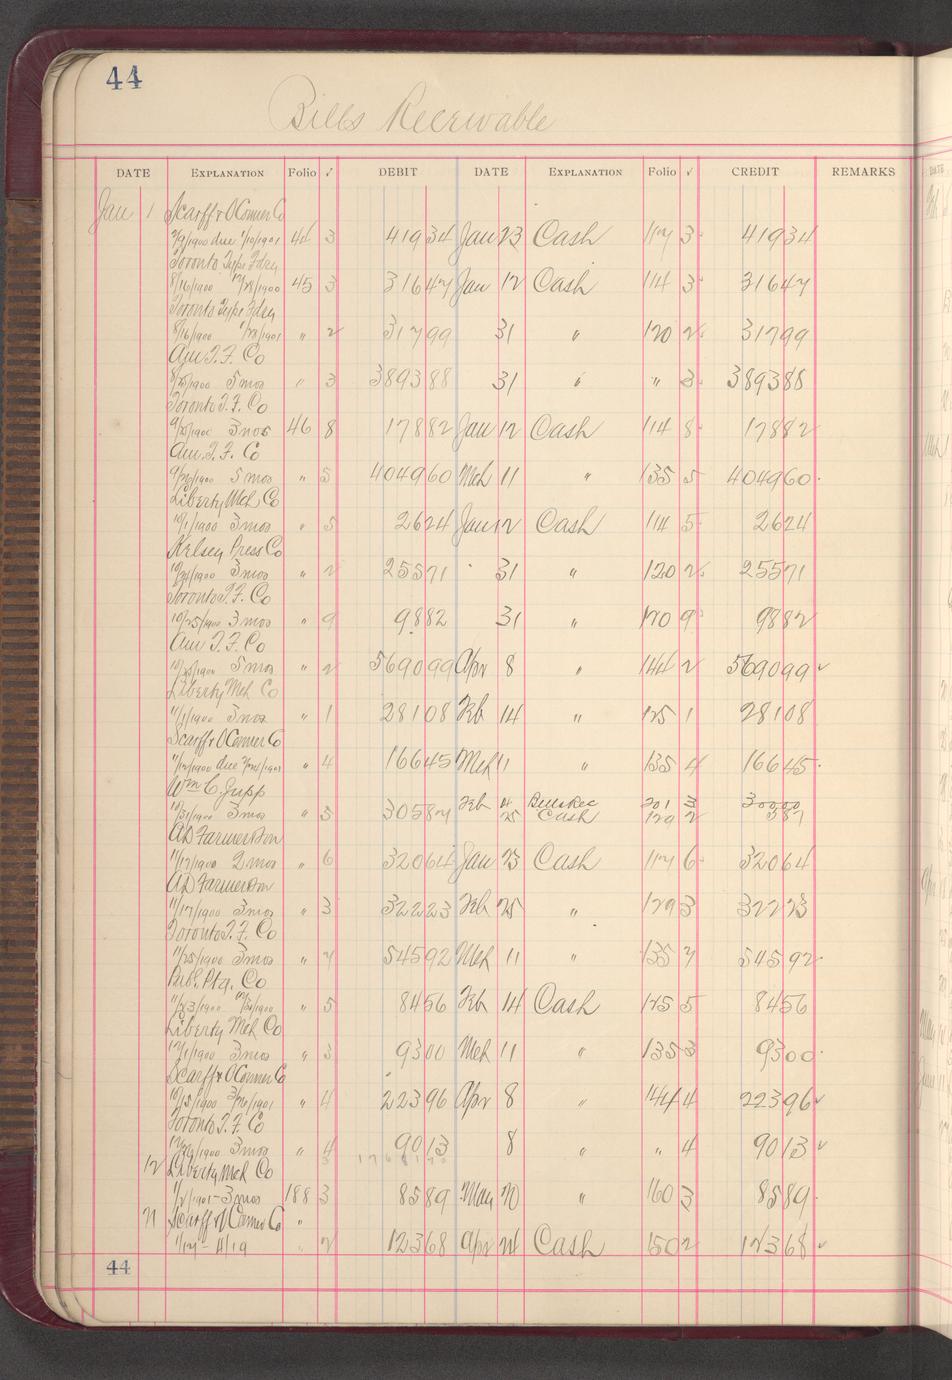 44
Bills Receivable
DATE EXPLANATION Folio √ DEBIT DATE EXPLANATION Folio √ CREDIT REMARKS
Jan 1 Scarff & O'Connor Co
due 1/10/1901 44 3 419 34 Jan 23 Cash 117 3 419 34
Toronto Type Fdry
8/16/1900 12/28/1900 45 3 316 47 Jan 12 Cash 114 3 316 47
Toronto Type Fdry
8/16/1900 1/28/1901 " 2 317 99 31 " 120 2 317 99
Am T. F. Co
1900 5 mos " 3 3893 88 31 " " 3 3893 88
Toronto T. F. Co
3 mos 46 8 178 82 Jan 12 Cash 114 8 178 82
Am T. F. Co
9/26/1900 5 mos " 5 4049 60 Mch 11 " 135 5 4049 60
Liberty Mch Co
10/1/1900 3 mos " 5 26 24 Jan 12 Cash 114 5 26 24
Kelsey Press Co
10/24/1900 3 mos " 2 255 71 31 " 120 2 255 71
Toronto T. F. Co
10/25/1900 3 mos " 9 98 82 31 " 120 9 98 82
Am T. F. Co
10/25/1900 5 mos " 2 5690 99 Apr 8 " 144 2 5690 99
Liberty Mch Co
11/1/1900 3 mos " 1 281 08 Feb 14 " 125 1 281 08
Scarff & O'Connor Co
11/12/1900 due " 4 166 45 Mch 11 " 135 4 166 45
Wm C. Jupp
Feb 14 Bills Rec 201 3 300 00
10/31/1900 3 mos " 5 305 87 25 Cash 129 2 5 87
A D Farmer & Son
11/17/1900 2 mos " 6 320 64 Jan 23 Cash 117 6 320 64
A D Farmer & Son
11/17/1900 3 mos " 3 322 23 Feb 25 " 129 3 322 23
Toronto T. F. Co
11/25/1900 3 mos " 7 545 92 Mch 11 " 135 7 545 92
Publ. Ptg. Co
11/23/1900 " 5 84 56 Feb 14 Cash 125 5 84 56
Liberty Mch Co
12/1/1900 3 mos " 3 93 00 Mch 11 " 135 3 93 00
Scarff & O'Connor Co
" 4 223 96 Apr 8 " 144 4 223 96
Toronto T. F. Co
3 mos " 4 90 13 8 " " 4 90 13
12 Liberty Mch Co
1901 - 3 mos 188 3 85 89 May 20 " 160 3 85 89
21 Scarff & O'Connor Co "
1/17 - 4/19 " 2 123 68 Apr 24 Cash 150 2 123 68
44